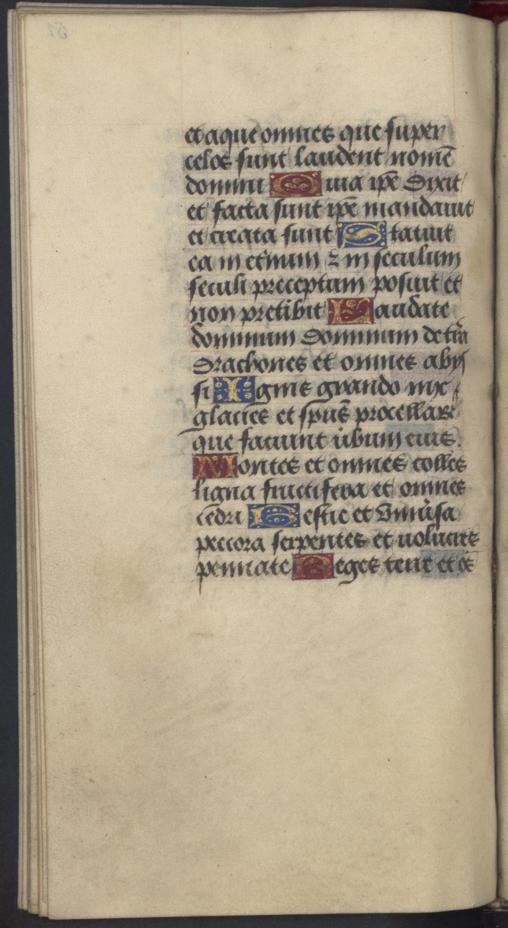 et aque omnes que super
celos sunt laudent nomē
domini Quia ip̄e dixit
et facta sunt ip̄e mandauit
et creata sunt Statuit
ea in et̄num ⁊ in seculum
seculi preceptum posuit et
non pretibit Laudate
dominum dominum de t̄ra
drachones et omnes abys
si Ignis grando nix
glacies et sp̄us procellar̄
que faciunt ūbum eius.
Montes et omnes colles
ligna fructifera et omnes
cedri Bestie et vniūsa
peccora serpentes et uolucres
pennate Reges terre et oēs